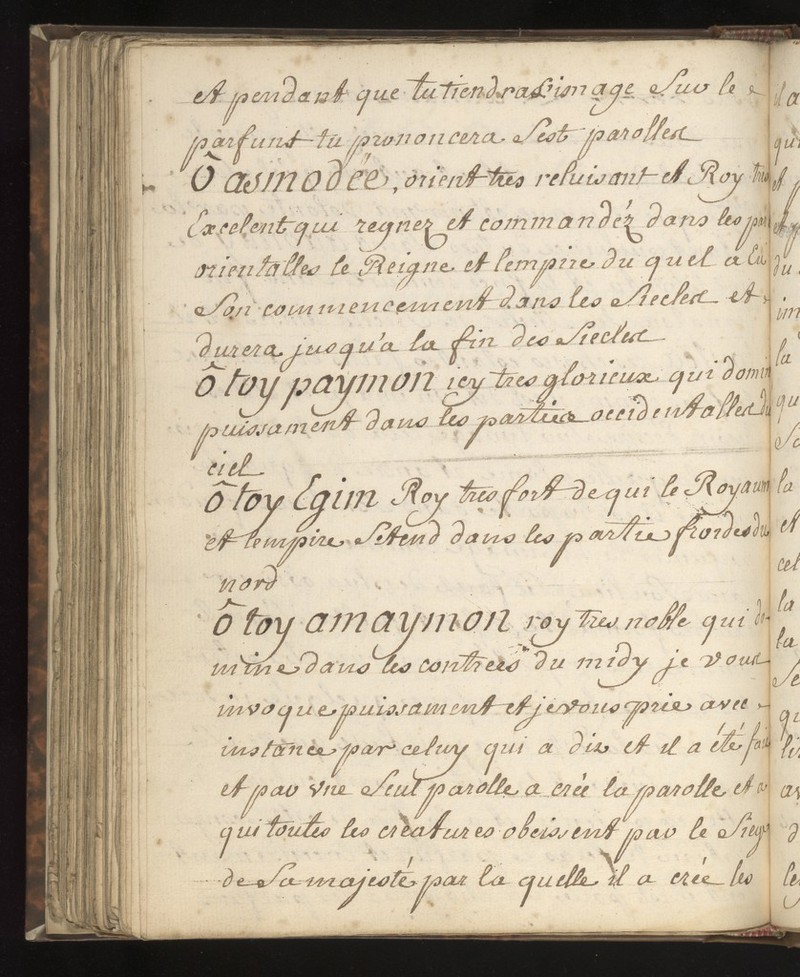 et pendant que tu tiendras l'image Sur le
parfunt tu prononcera Sest parolles
Ô asmodée, orient tres reluisant et Roy tres
Excelent qui regnez et commandéz dans les
orientalles le Reigne et lempire du quel a Eu
Son commencement dans les Siecles et
durera jusqu'a la fin des Siecles
ô toy paymon icy tres glorieux qui domin
puissament dans les parties occidentalles du
ciel
ô toy Egim Roy tres fort de qui le Royaum
et lempire Setend dans les partie froides du
nord
ô toy amaymon roy tres noble qui do-
mine dans les contrees du midy je vous
invoque puissament et je vous prie avec
instance par celuy qui a dit et il a été fait
et par vne Seul parolle a crée la parolle et a
qui toutes les creatures obeissent par le Siege
de Sa majesté par la quelle il a crée les